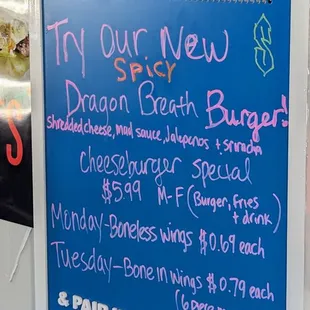 Try Our New
SPICY
Dragon Breath Burger!
shredded cheese, mad sauce, Jalapenos + sriracha
Cheeseburger special
$5.99 M-F (Burger, fries
+ drink)
Monday-Boneless wings $0.69 each
Tuesday-Bone in wings $0.79 each
(6 piece
& PAIR